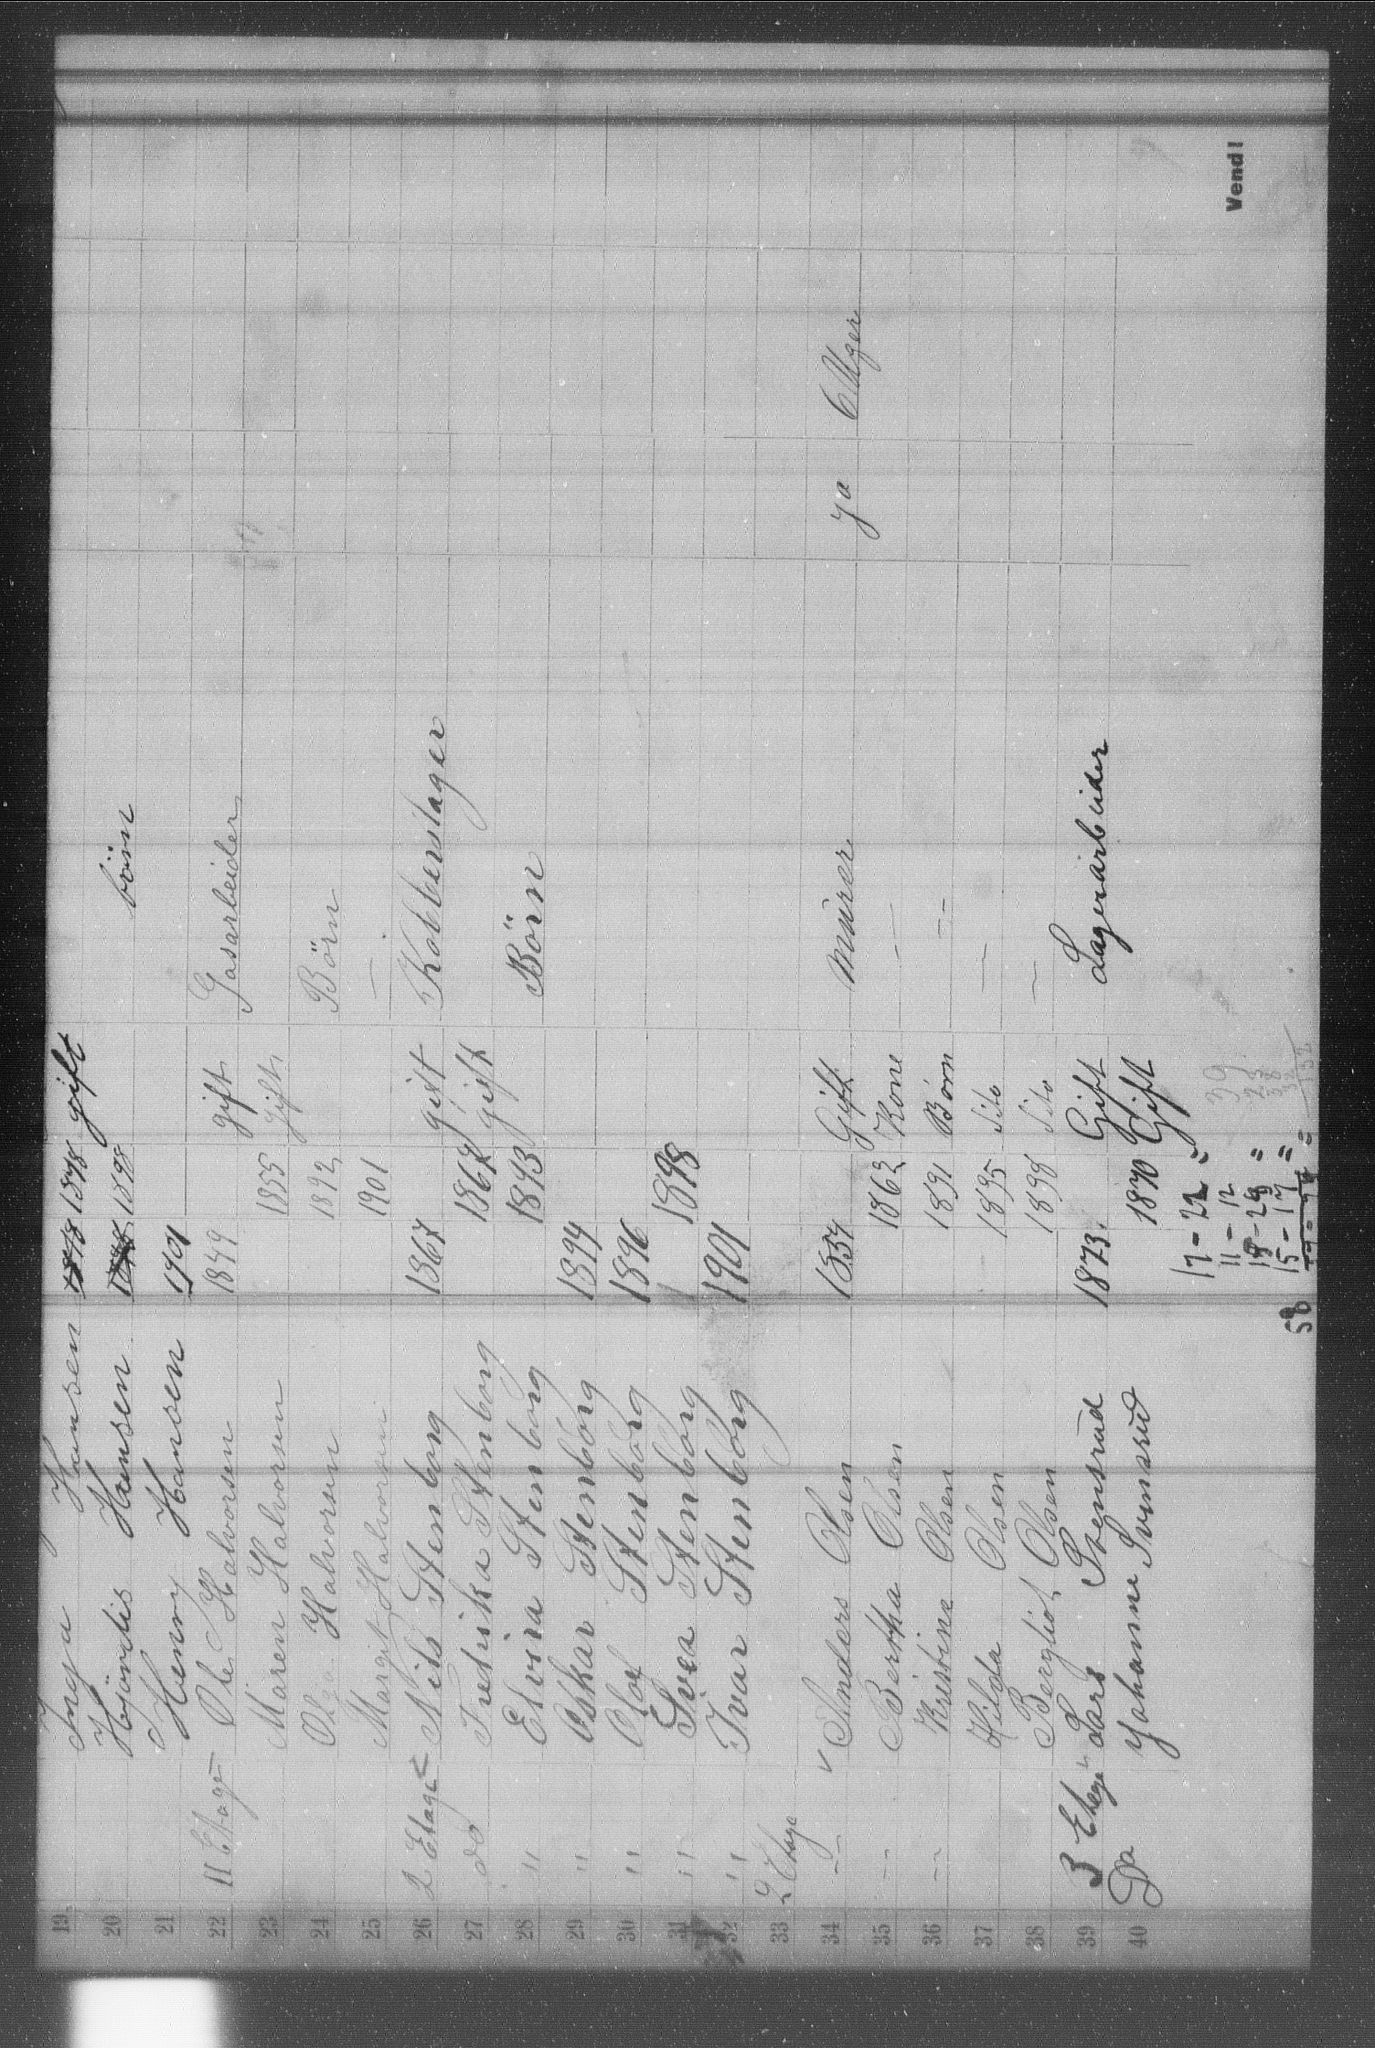 19 Inga Hansen 1878 1878 gift
20 Hjördis Hansen 1898 1898 börn
21 Henny Hansen 1901
22 II Etage Ole Halvorsen 1849 gift Gasarbeider
23 Maren Halvorsen 1855 gift
24 Olga Halvorsen 1892 Börn
25 Margit Halvorsen 1901 —
26 2 Etage Nils Stenborg 1867 gift Kobberslager
27 do Fredrika Stenborg 1867 gift
28 " Elvira Stenborg 1893 Börn
29 " Oskar Stenborg 1894
30 " Olof Stenborg 1896
31 " Svea Stenborg 1898
32 " Ivar Stenborg 1901
33 2 Etage
34 — √ Anders Olsen 1854 Gift Murer ja 6 Uger
35 — Bertha Olsen 1862 Kone —
36 — Kristine Olsen 1891 Börn —
37 Hilda Olsen 1895 dito —
38 Bergliot Olsen 1898 dito —
39 3 Etage Lars Svensrud 1873 Gift Lagerarbeider
40 Da Johanne Svensrud 1870 Gift
17 - 22 =
11 - 12
15 - 17 =
58
Vend!